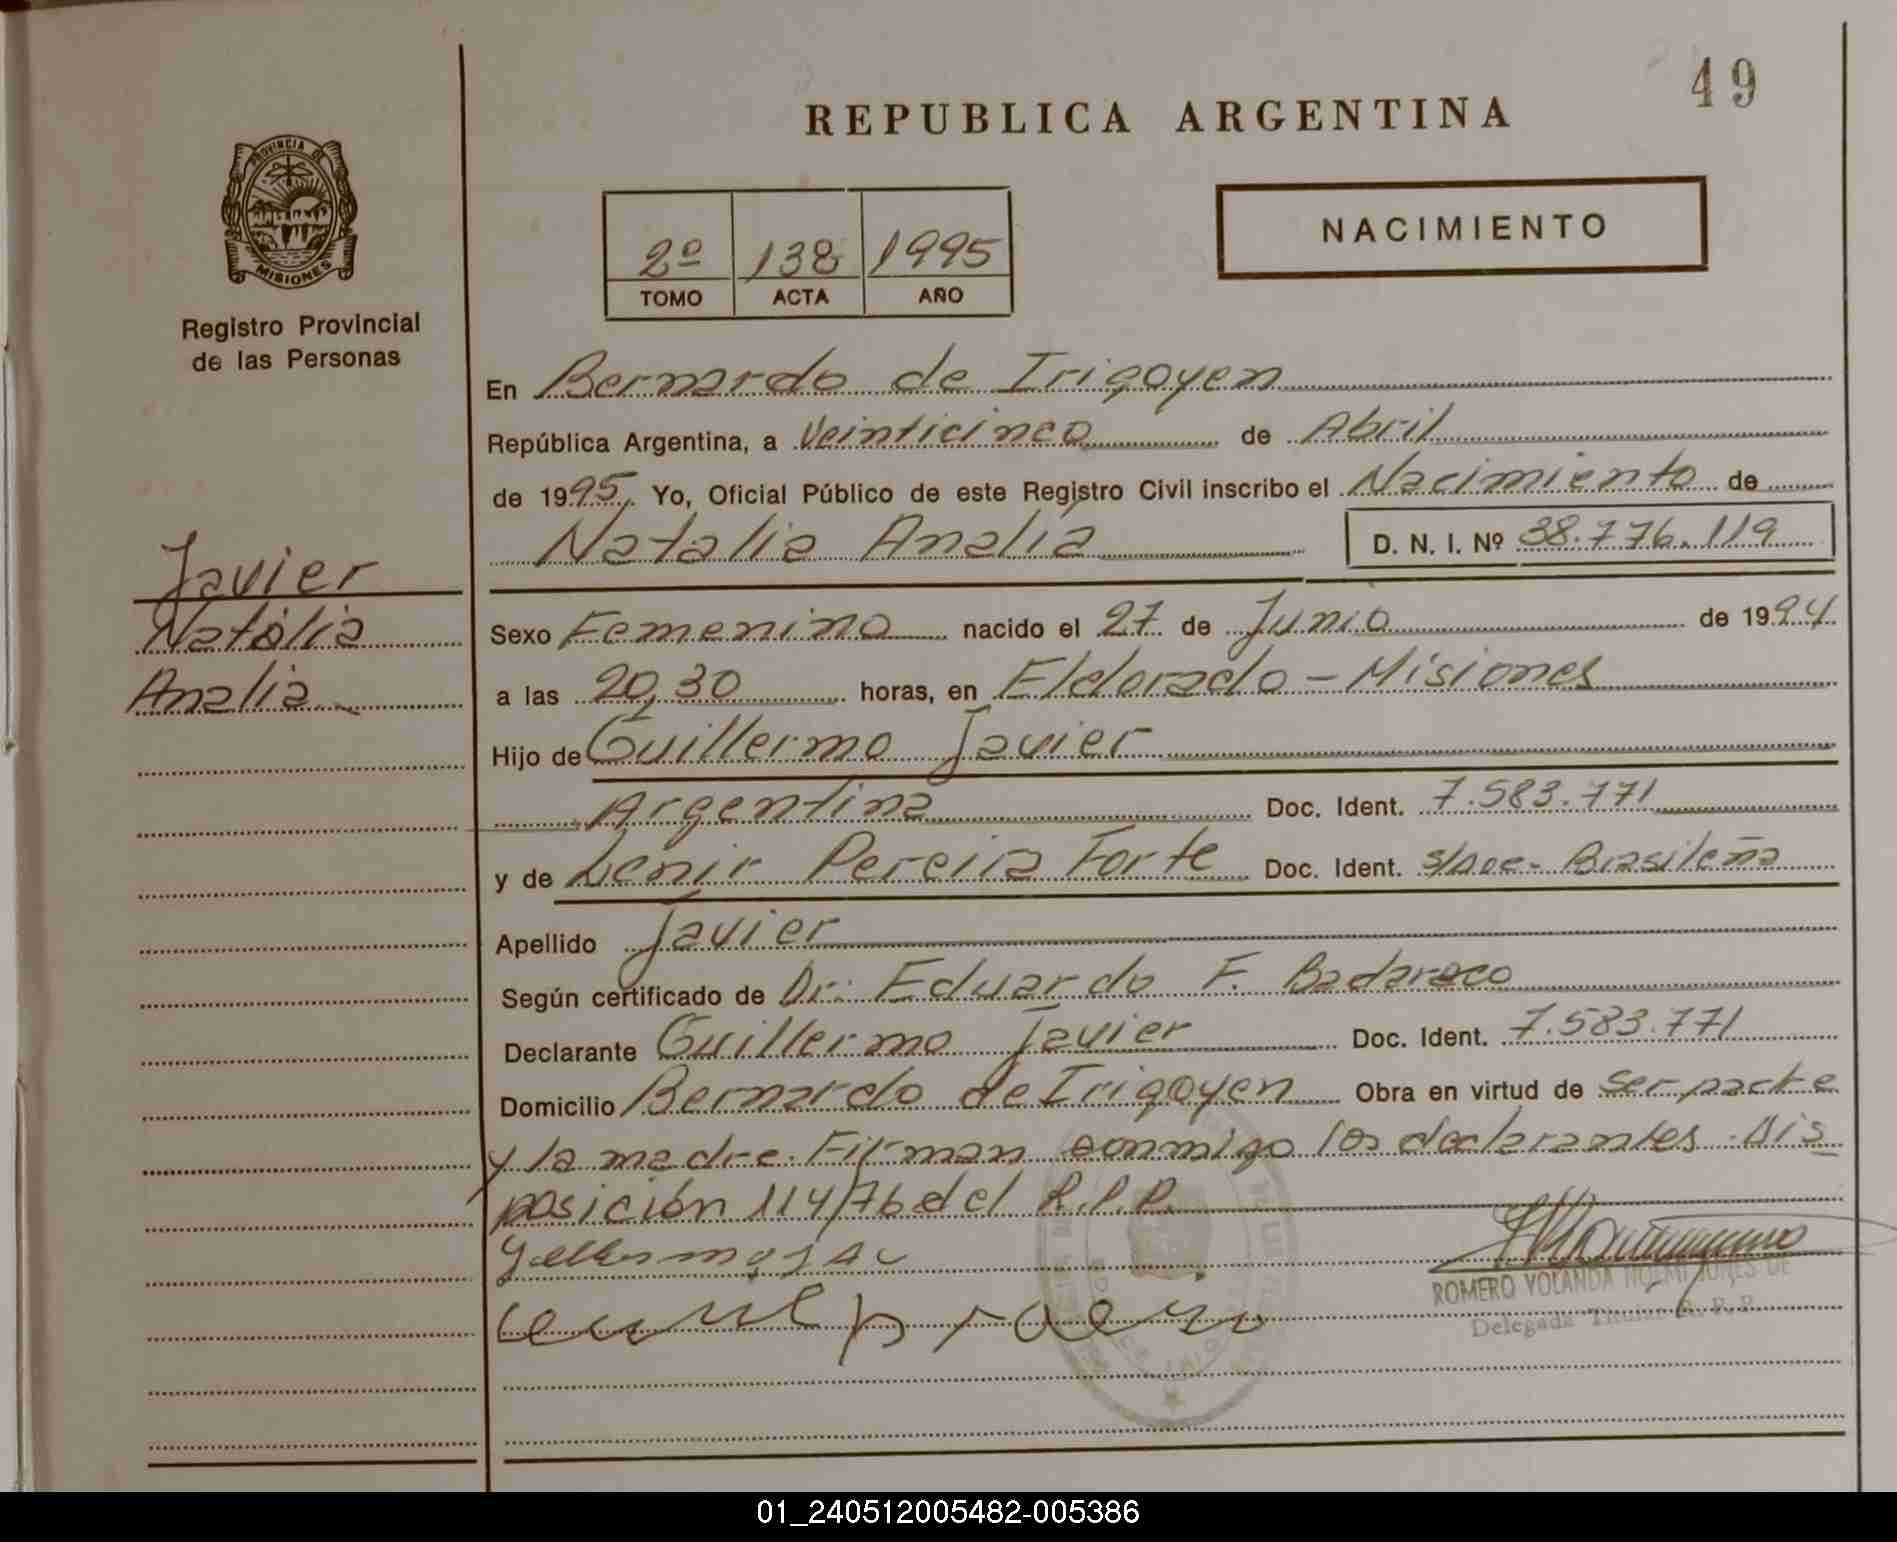 49
REPUBLICA ARGENTINA
PROVINCIA DE
MISIONES
Registro Provincial
de las Personas
2º 138 1995
TOMO ACTA AÑO
NACIMIENTO
En Bernardo de Irigoyen
República Argentina, a Veinticinco de Abril
de 1995, Yo, Oficial Público de este Registro Civil inscribo el Nacimiento de
Natalia Analia D. N. I. Nº 38.776.119
Javier
Natalia
Analia
Sexo Femenino nacido el 27 de Junio de 1994
a las 20,30 horas, en Eldorado - Misiones
Hijo de Guillermo Javier
Argentina Doc. Ident. 7.583.771
y de Lenir Pereira Forte Doc. Ident. s/Doc- Brasileña
Apellido Javier
Según certificado de Dr. Eduardo F. Badaraco
Declarante Guillermo Javier Doc. Ident. 7.583.771
Domicilio Bernardo de Irigoyen Obra en virtud de ser padre
y la madre. Firman conmigo los declarantes. Dis
posición 114/76 del R.P.P.
ROMERO YOLANDA NOEMI DE
Delegada Titular R. P. P.
01_240512005482-005386